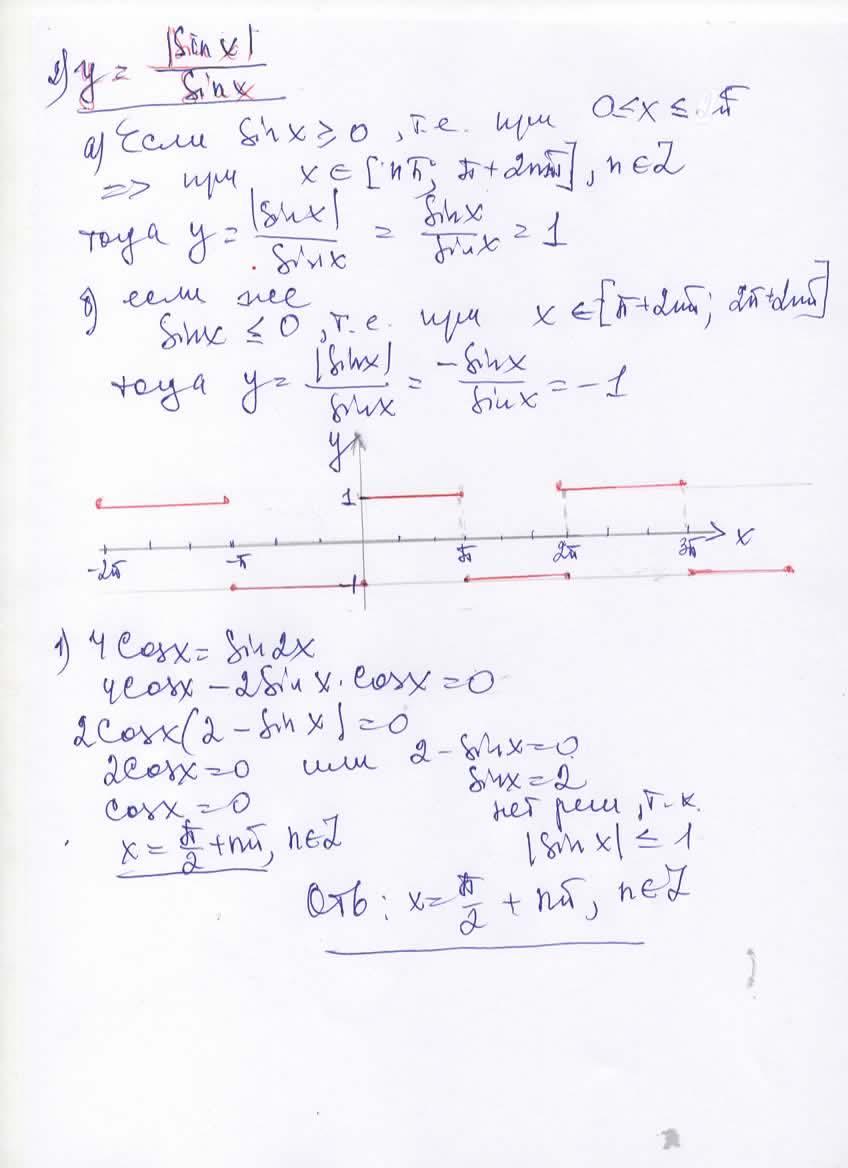 2) y = |Sin x| / Sin x
а) Если Sin x ≥ 0, т.е. при 0 < x ≤ π
=> при x ∈ [nπ; π + 2nπ], n ∈ Z
тогда y = |sin x| / sin x = sin x / sin x = 1
б) если же
sin x ≤ 0, т.е. при x ∈ [π + 2nπ; 2π + 2nπ]
тогда y = |sin x| / sin x = -sin x / sin x = -1
y
1
-2π -π π 2π 3π x
-1
1) 4 cos x = sin 2x
4 cos x - 2 sin x · cos x = 0
2 cos x (2 - sin x) = 0
2 cos x = 0 или 2 - sin x = 0
cos x = 0 sin x = 2
нет реш, т.к.
x = π/2 + nπ, n ∈ Z |sin x| ≤ 1
Отв: x = π/2 + nπ, n ∈ Z